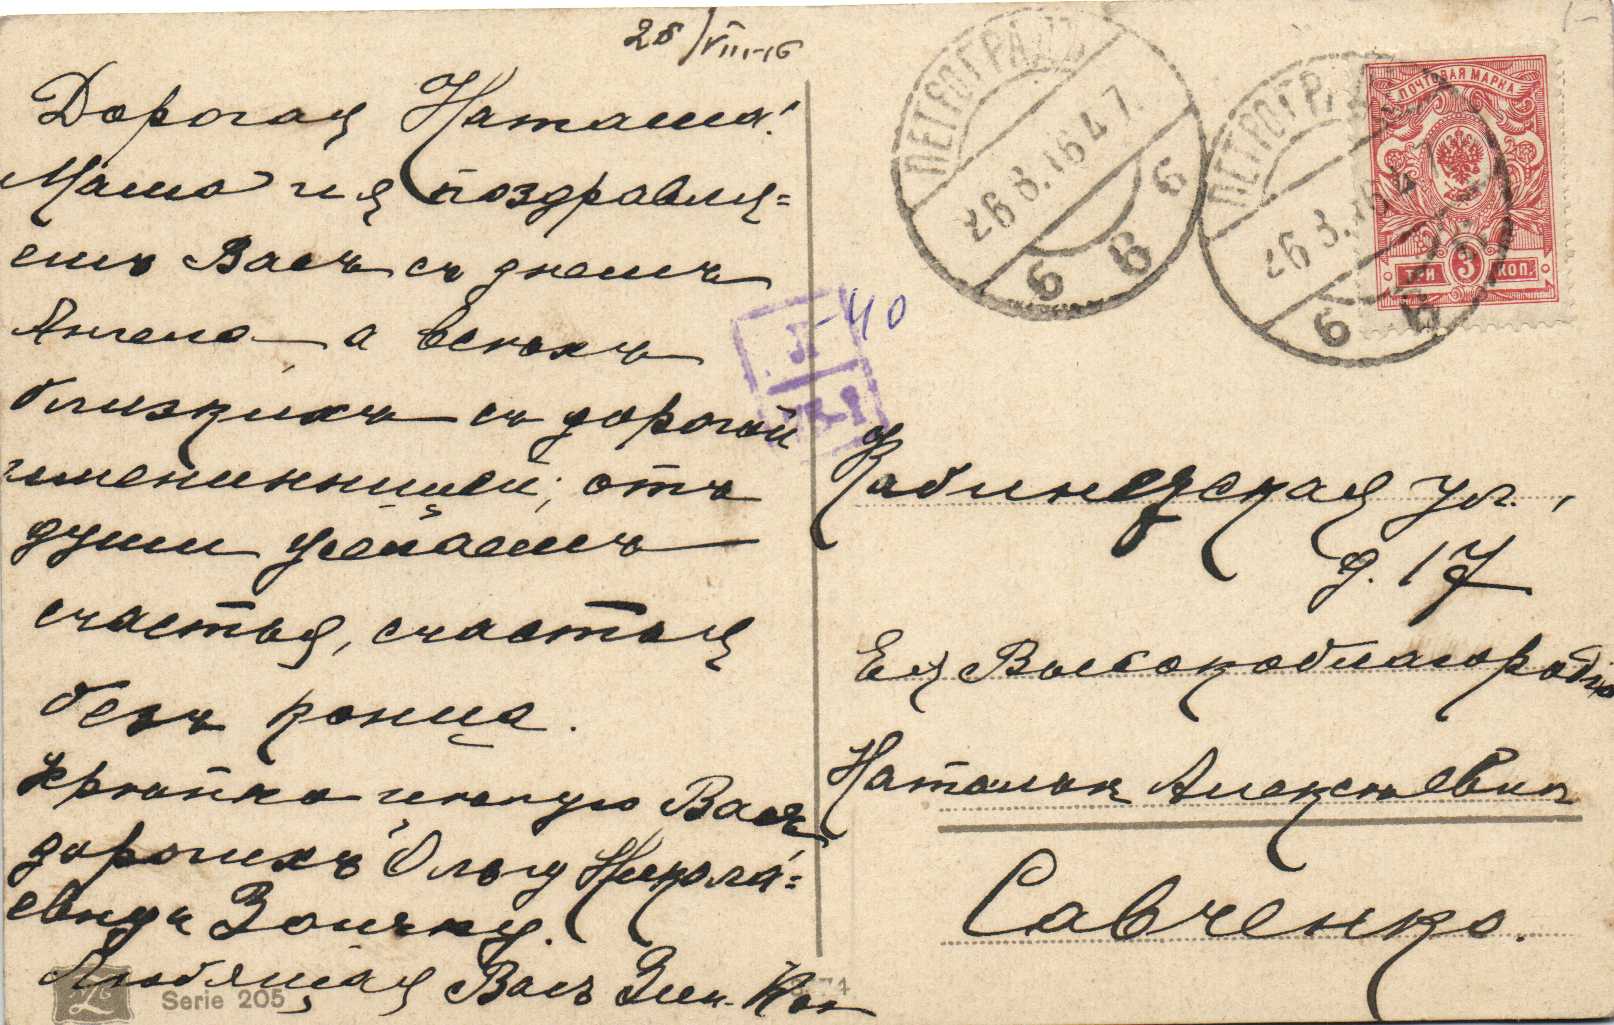 25/VIII-16
Дорогая Наташа!
Маша и я поздравля=
емъ Васъ съ днемъ
Ангела а всѣхъ
близкихъ съ дорогой
именинницей; отъ
души желаемъ
счастья, счастья
безъ конца.
Крѣпко цѣлую Васъ
дорогихъ Ольгу Никола=
евну и Зоичку.
Любящая Васъ Зин.
Serie 205
ПЕТРОГРАДЪ
26.8.16
6 В 6
ПЕТРОГРАДЪ
26.8.16
6 В 6
ПОЧТОВАЯ МАРКА
ТРИ 3 КОП.
40
Кабинетская ул.,
д. 17
Ея Высокоблагородію
Наталіи Алексѣевнѣ
Савченко.